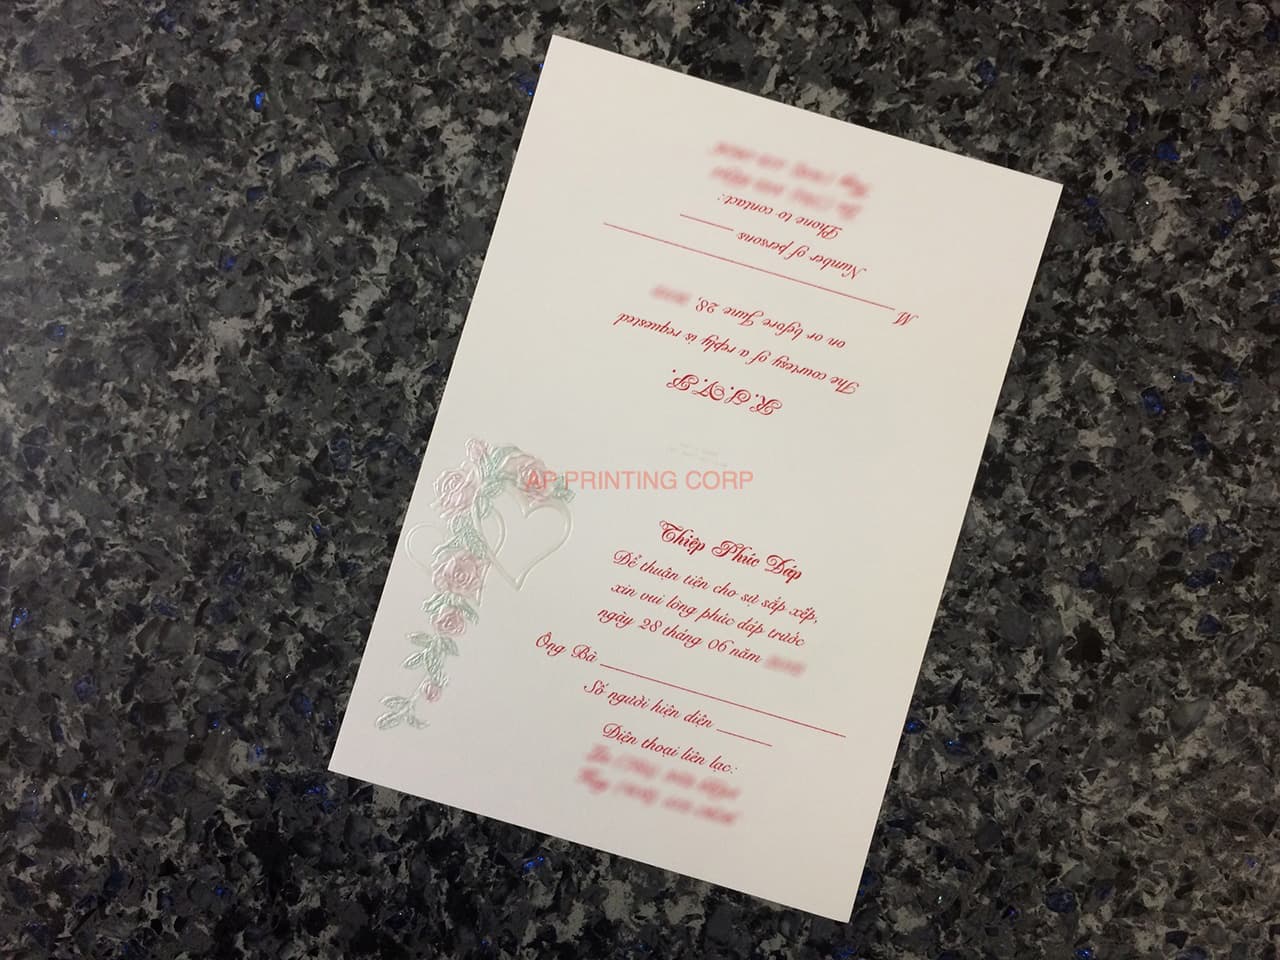 R.S.V.P.
The courtesy of a reply is requested
on or before June 28,
M
Number of persons
Phone to contact:
AP PRINTING CORP
Thiệp Phúc Đáp
Để thuận tiện cho sự sắp xếp,
xin vui lòng phúc đáp trước
ngày 28 tháng 06 năm
Ông Bà
Số người hiện diện
Điện thoại liên lạc: